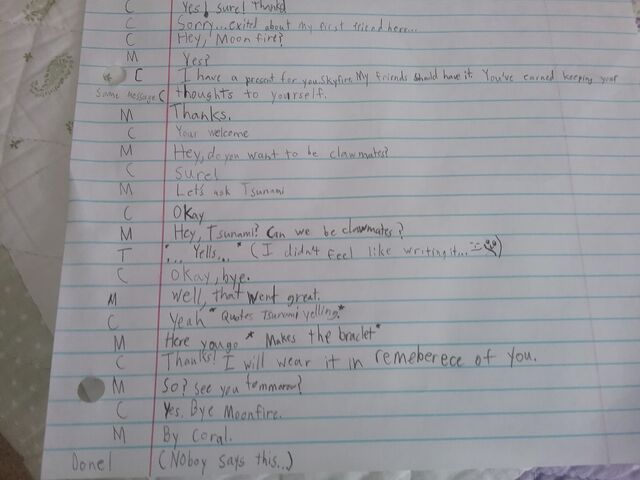 C Yes! sure! Thanks
C Sorry...exited about my first friend here...
C Hey, Moonfire?
M Yes?
C I have a present for you. Skyfire. My friends should have it. You've earned keeping your
Same message C thoughts to yourself.
M Thanks.
C Your welcome
M Hey, do you want to be clawmates?
C Sure!
M Let's ask Tsunami
C Okay
M Hey, Tsunami? Can we be clawmates?
T *... Yells...* (I didn't feel like writing it...
C Okay, bye.
M Well, that went great.
C Yeah *Quotes Tsunami yelling*
M Here you go *Makes the braclet*
C Thanks! I will wear it in remeberece of you.
M So? see you tommarow?
C Yes. Bye Moonfire.
M By Coral.
Done! (Noboy says this...)